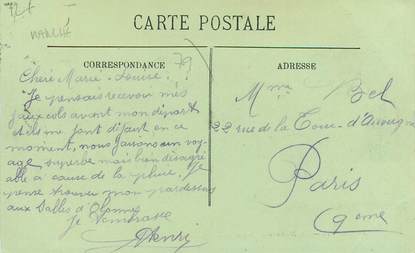 72 f
MANCHE
CARTE POSTALE
CORRESPONDANCE
79
ADRESSE
Chère Marie-Louise!
Je pensais recevoir mes
faux cols avant mon départ
et ils me font défaut en ce
moment, nous faisons un voy-
age superbe mais bien désagré
able à cause de la pluie, Je
pense trouver mon pardessus
aux Sables d'Olonne
Je t'embrasse
Henri
Mme Bel
22 rue de la Tour-d'Auvergne
Paris
9eme